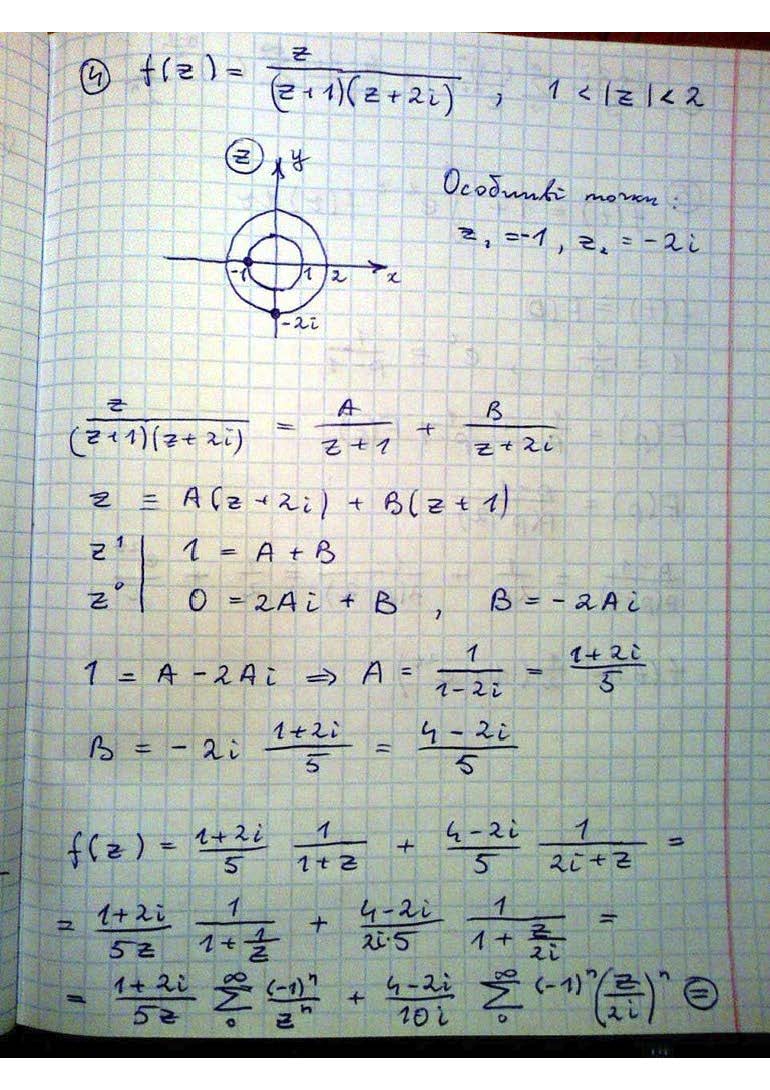 ④ f(z) = z / ((z+1)(z+2i)) , 1 < |z| < 2
z y
Особливі точки :
z₁ = -1 , z₂ = -2i
-1 1 2 x
-2i
z / ((z+1)(z+2i)) = A / (z+1) + B / (z+2i)
z ≡ A(z+2i) + B(z+1)
z¹ | 1 = A + B
z⁰ | 0 = 2Ai + B , B = -2Ai
1 = A - 2Ai ⇒ A = 1 / (1-2i) = (1+2i) / 5
B = -2i (1+2i) / 5 = (4-2i) / 5
f(z) = (1+2i)/5 1/(1+z) + (4-2i)/5 1/(2i+z) =
= (1+2i)/(5z) 1/(1+1/z) + (4-2i)/(2i·5) 1/(1+z/(2i)) =
= (1+2i)/(5z) ∑₀^∞ (-1)ⁿ/zⁿ + (4-2i)/(10i) ∑₀^∞ (-1)ⁿ (z/(2i))ⁿ ⊜